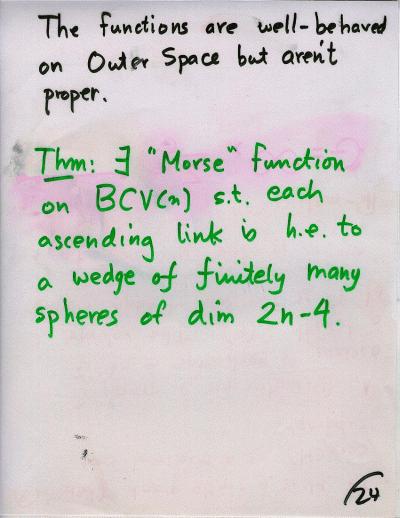 The functions are well-behaved
on Outer Space but aren't
proper.
Thm: ∃ "Morse" function
on BCV(n) s.t. each
ascending link is h.e. to
a wedge of finitely many
spheres of dim 2n-4.
24